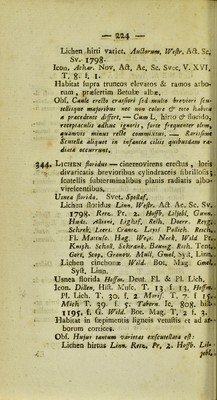 — 224 —
Lichen hirti variet. Auctorum, Westr. Act. Sc.
Sv. 1798.
Icon. Achar. Nov. Act. Ac. Sc. Svec, V. XVI,
T. 8. f. 1.
Habitat supra truncos elevatos & ramos arbo-
rum, præsertim Betulæ albæ.
Obs. Caule erecto crassiori sed multo breviori scu-
tellisque majoribus nec non colore & toto habitu
a præcedente differt. — Cum L. hirto & florido,
receptaculis adhuc ignotis, forte frequenter olim,
quamvis minus recte commixtus. — Rarissime
Scutella aliquot in infantia ciliis quibusdam ra-
diata occurrunt.
344. LICHEN floridus — cinereovirens erectus, loris
divaricatis brevioribus cylindraceis fibrillosis;
scutellis subterminalibus planis radiatis albo-
virescentibus.
Usnea florida. Svet. Spegaf.
Lichen floridus Linn. Westr. Act. Ac. Sc. Sv.
1798. Retz. Pr. 2. Hoffb. Liljebl. Gunn.
Huds. Allioni, Lighsf. Relh. Doerr. Reyg.
Schreb. Leers. Crantz. Leyss. Pollich. Reich.
Fl. Mattusc. Hag. Weis. Neck. Wild. Pr.
Knyph. Schol. Schrank. Baumg. Roth. Tent.
Gorz, Scop. Gronov. Mull. Gmel. Syst. Linn.
Lichen cinchonæ Wild. Bot. Mag. Gmel.
Syst. Linn.
Usnea florida Hoffm. Deut. Fl. & Pl. Lich.
Icon. Dillen, Hist. Musc. T. 13. f. 13. Hoffm.
Pl. Lich. T. 30. f. 2. Moris. T. 7. f. 15.
Mich T. 39. f. 5. Tabern. Ic. 808. hist.
1195. f. G. Wild. Bot. Mag. T. 2. f. 3.
Habitat in sæpimentis ligneis vetustis et ad ar-
borum cortices.
Obs. Hujus tantum varietas exscutellata est:
Lichen hirtus Linn. Retz. Pr. 2. Hoffb. Lil-
jebl.